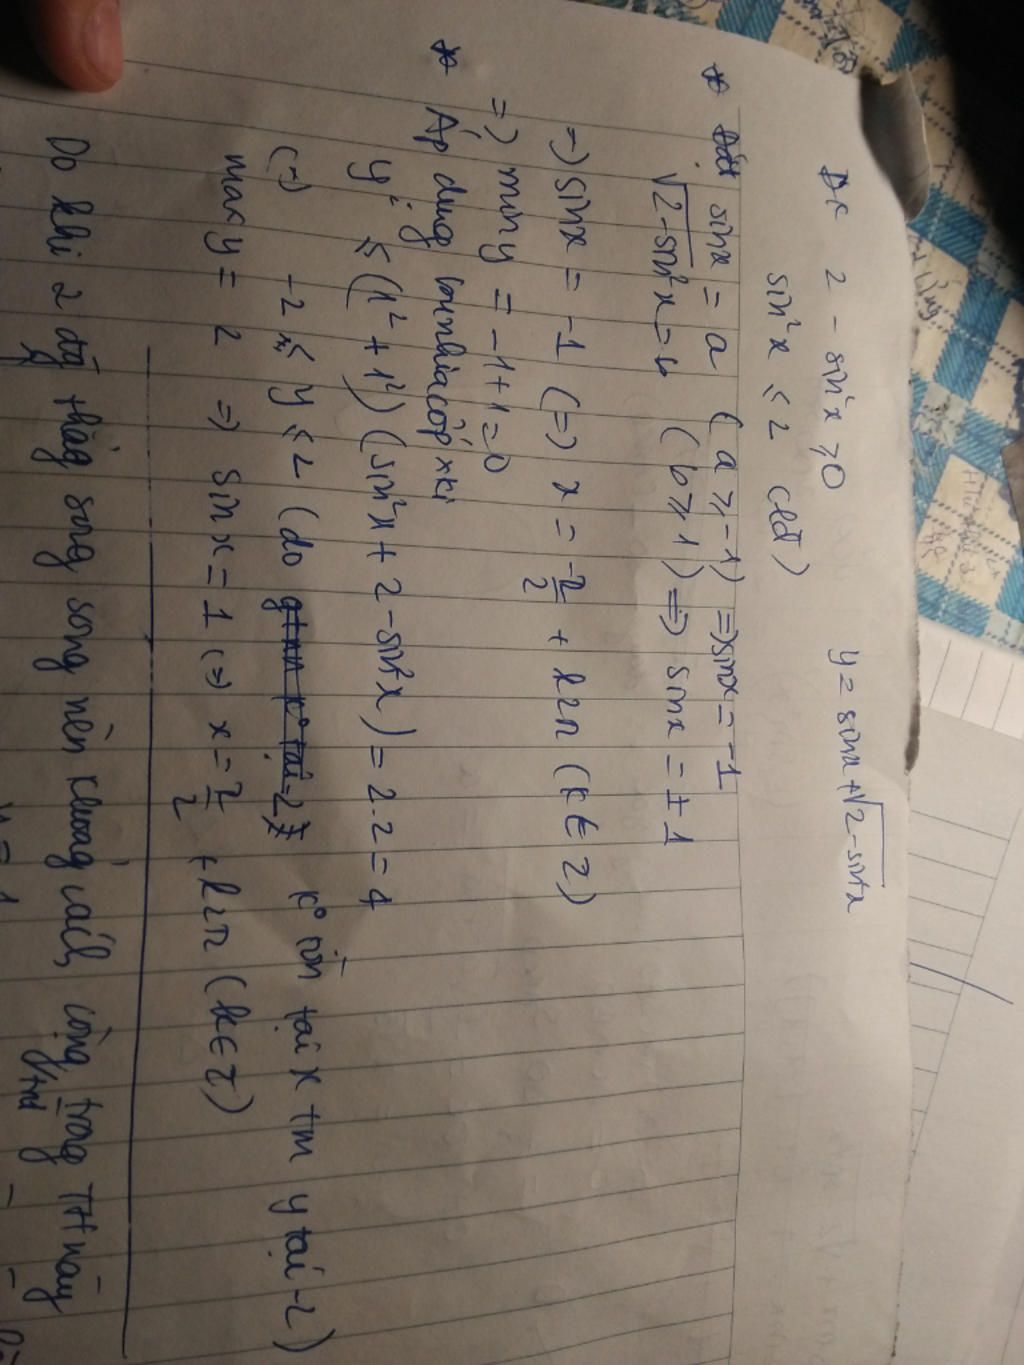 Đk 2 - sin²x ≥ 0 y = sinx + √2-sin²x
sin²x ≤ 2 (lđ)
* sinx = a (a ≥ -1) => sinx = -1
√2-sin²x = b (b ≥ 1) => sinx = ±1
-) sinx = -1 (=) x = -π/2 + k2π (k ∈ Z)
=) min y = -1 + 1 = 0
* Áp dụng bunhiacốp xki
y² ≤ (1² + 1²) (sin²x + 2 - sin²x) = 2.2 = 4
(=) -2 ≤ y ≤ 2 (do k° tồn tại x tm y tại -2)
max y = 2 => sinx = 1 (=) x = π/2 + k2π (k ∈ Z)
Do khi 2 đg thẳng song song nên khoảng cách, cộng trong TH này